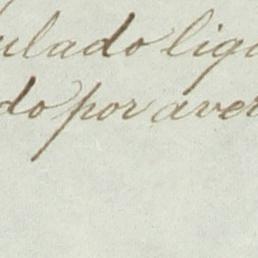 ulado ligi
do por aver